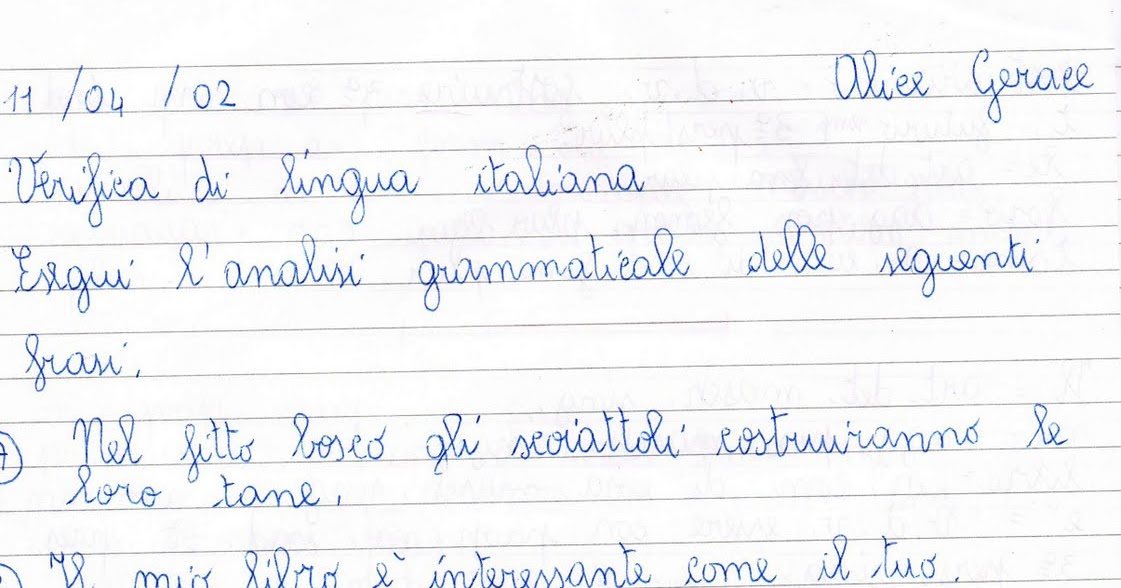 11/04/02 Alice Gerace
Verifica di lingua italiana
Esegui l'analisi grammaticale delle seguenti
frasi.
Nel fitto bosco gli scoiattoli costruiranno le
loro tane.
Il mio libro è interessante come il tuo